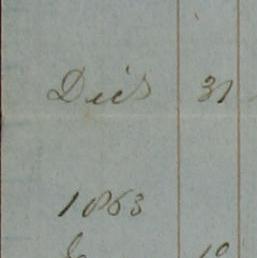 Decr 31
1863